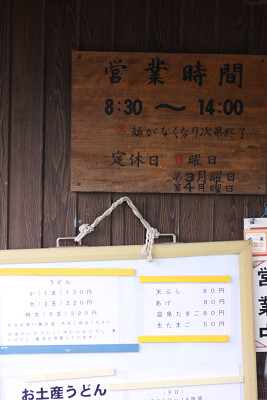 営業時間
8:30〜14:00
※麺がなくなり次第終了
定休日 日曜日
第3月曜日
第4月曜日
うどん
小(1玉)130円
大(2玉)220円
特大(3玉)320円
天ぷら 80円
あげ 80円
温泉たまご 80円
生たまご 50円
お土産うどん
(平日)
営業中